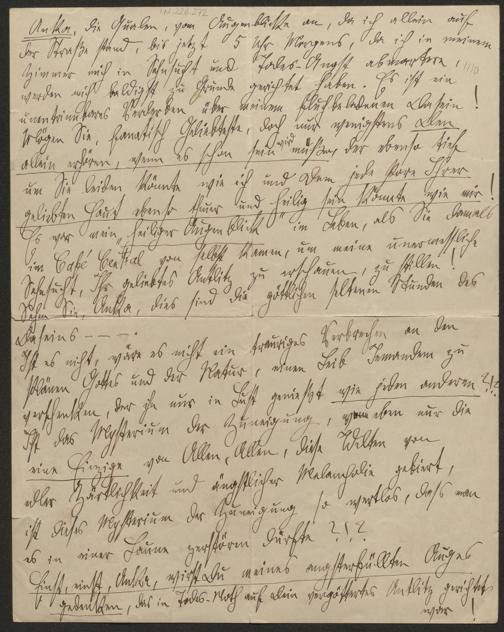 I.N. 226.272
Anka, die Qualen, vom Augenblicke an, da ich allein auf
der Straße stand, bis jetzt 5 Uhr Morgens, da ich in meinem
Zimmer mich in Sehnsucht und Todes-Angst
werden mich baldigst zu Grunde gerichtet haben. Es ist ein
unentrinnbares Verderben über meinem fluchbeladenen Dasein!
Mögen Sie, fanatisch Geliebteste, doch nur wenigstens Den
allein erhören, wenn es schon sein wird müssen, der ebenso tief
um Sie leiden könnte wie ich und Dem jede Pore Ihrer
geliebten Haut ebenso theuer und heilig sein könnte wie mir!
Es war mein "heiliger Augenblick" im Leben, als Sie damals
im Café Central von selbst kamen, um meine unermessliche
Sehnsucht, Ihr geliebtes Antlitz zu erschauen, zu stillen!
Sehn Sie, Anka, dies sind die göttlichen seltenen Stunden des
Daseins — — —.
Ist es nicht, wäre es nicht ein trauriges Verbrechen an den
Plänen Gottes und der Natur, einen Leib Jemandem zu
verschenken, der ihn nur in Lust genießt wie jeden anderen?!?
Ist das Mysterium der Zuneigung, eben nur die
eine Einzige von Allen, Allen, diese Welten von
edler Zärtlichkeit und ängstlicher Melancholie gebiert,
ist dieses Mysterium der Zuneigung so wertlos, dass man
es in einer Laune zerstören dürfte?!?
Einst, einst, Anka, wirst Du meines angsterfüllten Auges
gedenken, das in Todes-Noth auf Dein vergöttertes Antlitz gerichtet
war!